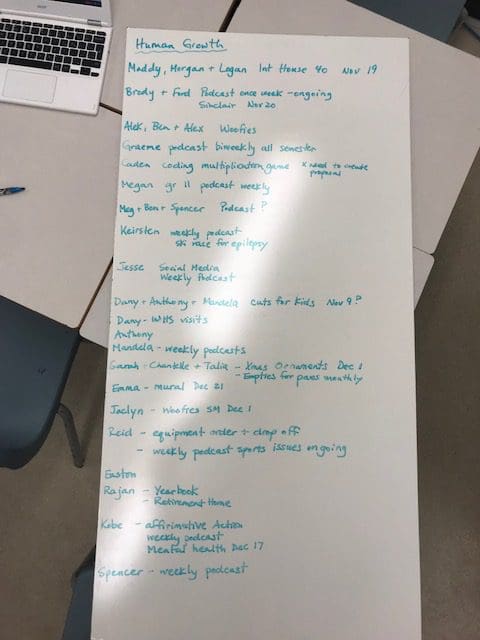 Human Growth
Maddy, Morgan + Logan Int House 40 Nov 19
Brody + Ford Podcast once week - ongoing
Sinclair Nov 20
Alek, Ben + Alex Woofies
Graeme podcast biweekly all semester
Caden coding multiplication game * need to create
proposal
Megan gr 11 podcast weekly
Meg + Ben + Spencer Podcast ?
Keirsten weekly podcast
ski race for epilepsy
Jesse Social Media
Weekly Podcast
Dany + Anthony + Mandela cuts for Kids Nov 9 ?
Dany - WHS visits
Anthony
Mandela - weekly podcasts
Sarah + Chantelle + Talia - Xmas Ornaments Dec 1
- Empties for paws monthly
Emma - mural Dec 21
Jaclyn - Woofies SM Dec 1
Reid - equipment order + drop off
- weekly podcast sports issues ongoing
Easton
Rajan - Yearbook
- Retirement Home
Kobe - affirmative Action
weekly podcast
Mental health Dec 17
Spencer - weekly podcast